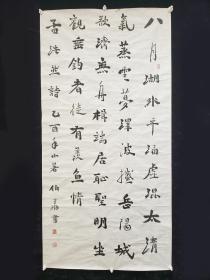 八月湖水平涵虛混太清
氣蒸雲夢澤波撼岳陽城
欲濟無舟楫端居恥聖明坐
觀垂釣者徒有羨魚情
孟浩然詩 乙酉年小暑 伯 書